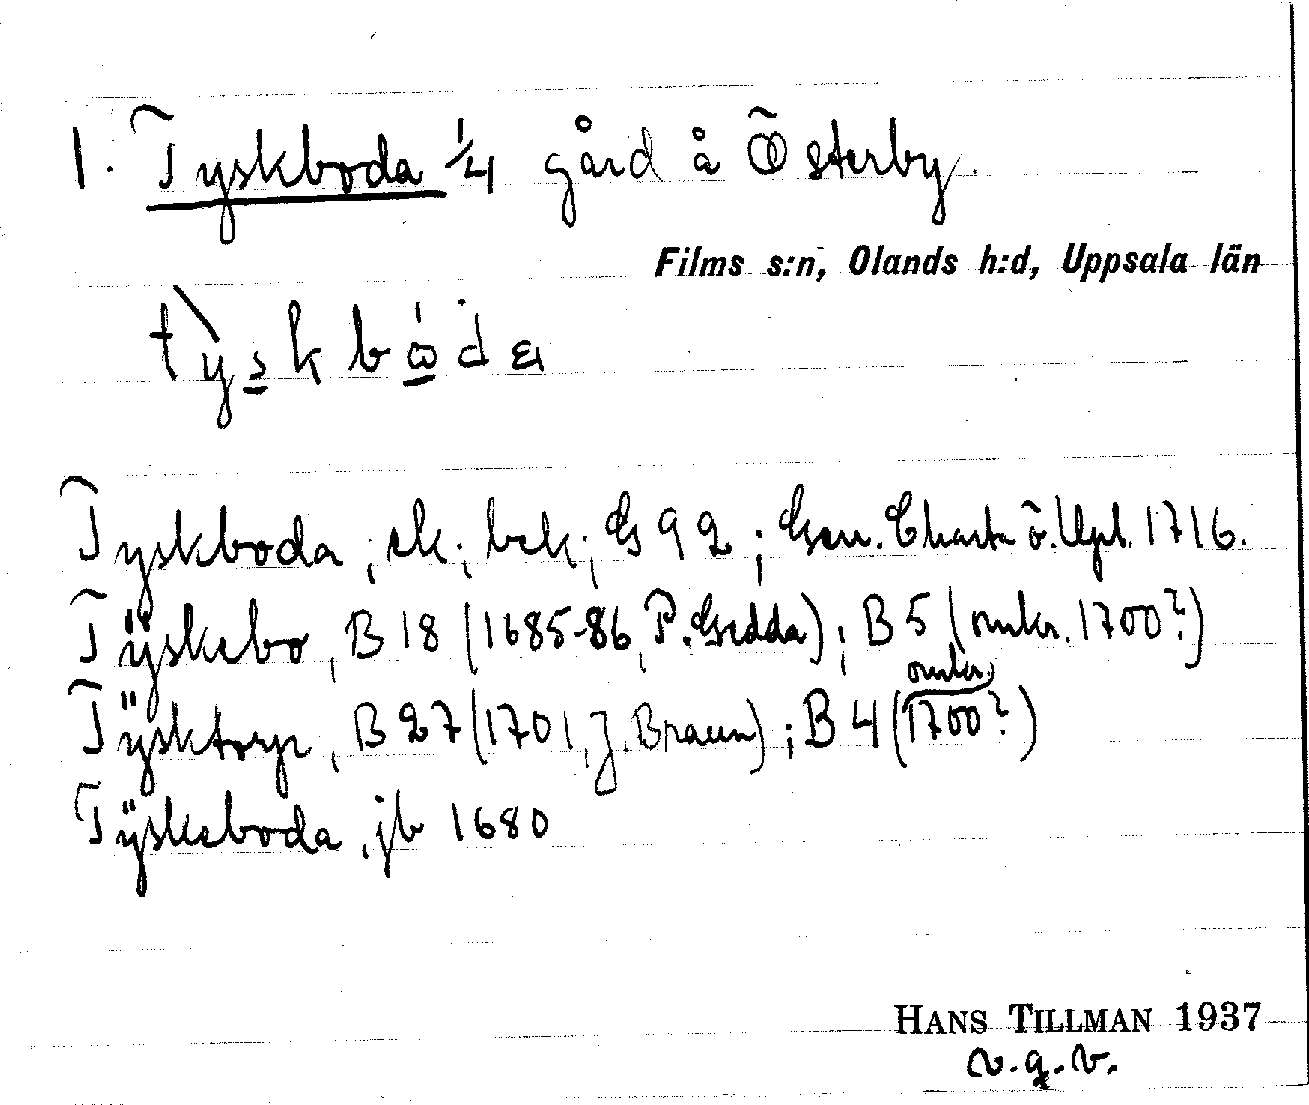 1. Tyskboda 1/4 gård å Österby.
Films s:n, Olands h:d, Uppsala län
Tyskboda, ek; bsk; G 92; Gen. Charta ö. Upl. 1716.
Tÿskebo, B 18 (1685-86, P. Gedda); B 5 (omkr. 1700?)
Tÿsktorp, B 27 (1701, J. Braun); B 4 (omkr. 1700?)
Tÿskeboda, jb 1680
HANS TILLMAN 1937
v.g.v.